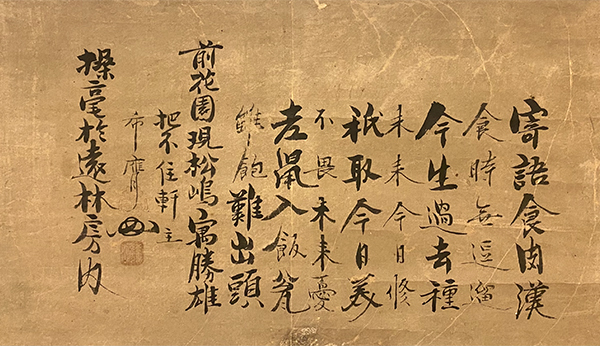 寄語食肉漢
食時無逗遛
今生過去種
未来今日修
祇取今日美
不畏未来憂
老鼠入飯瓮
雖飽難出頭
前花園現松嶋寓勝雄
把不住軒主
希膺
操毫於遠林房内